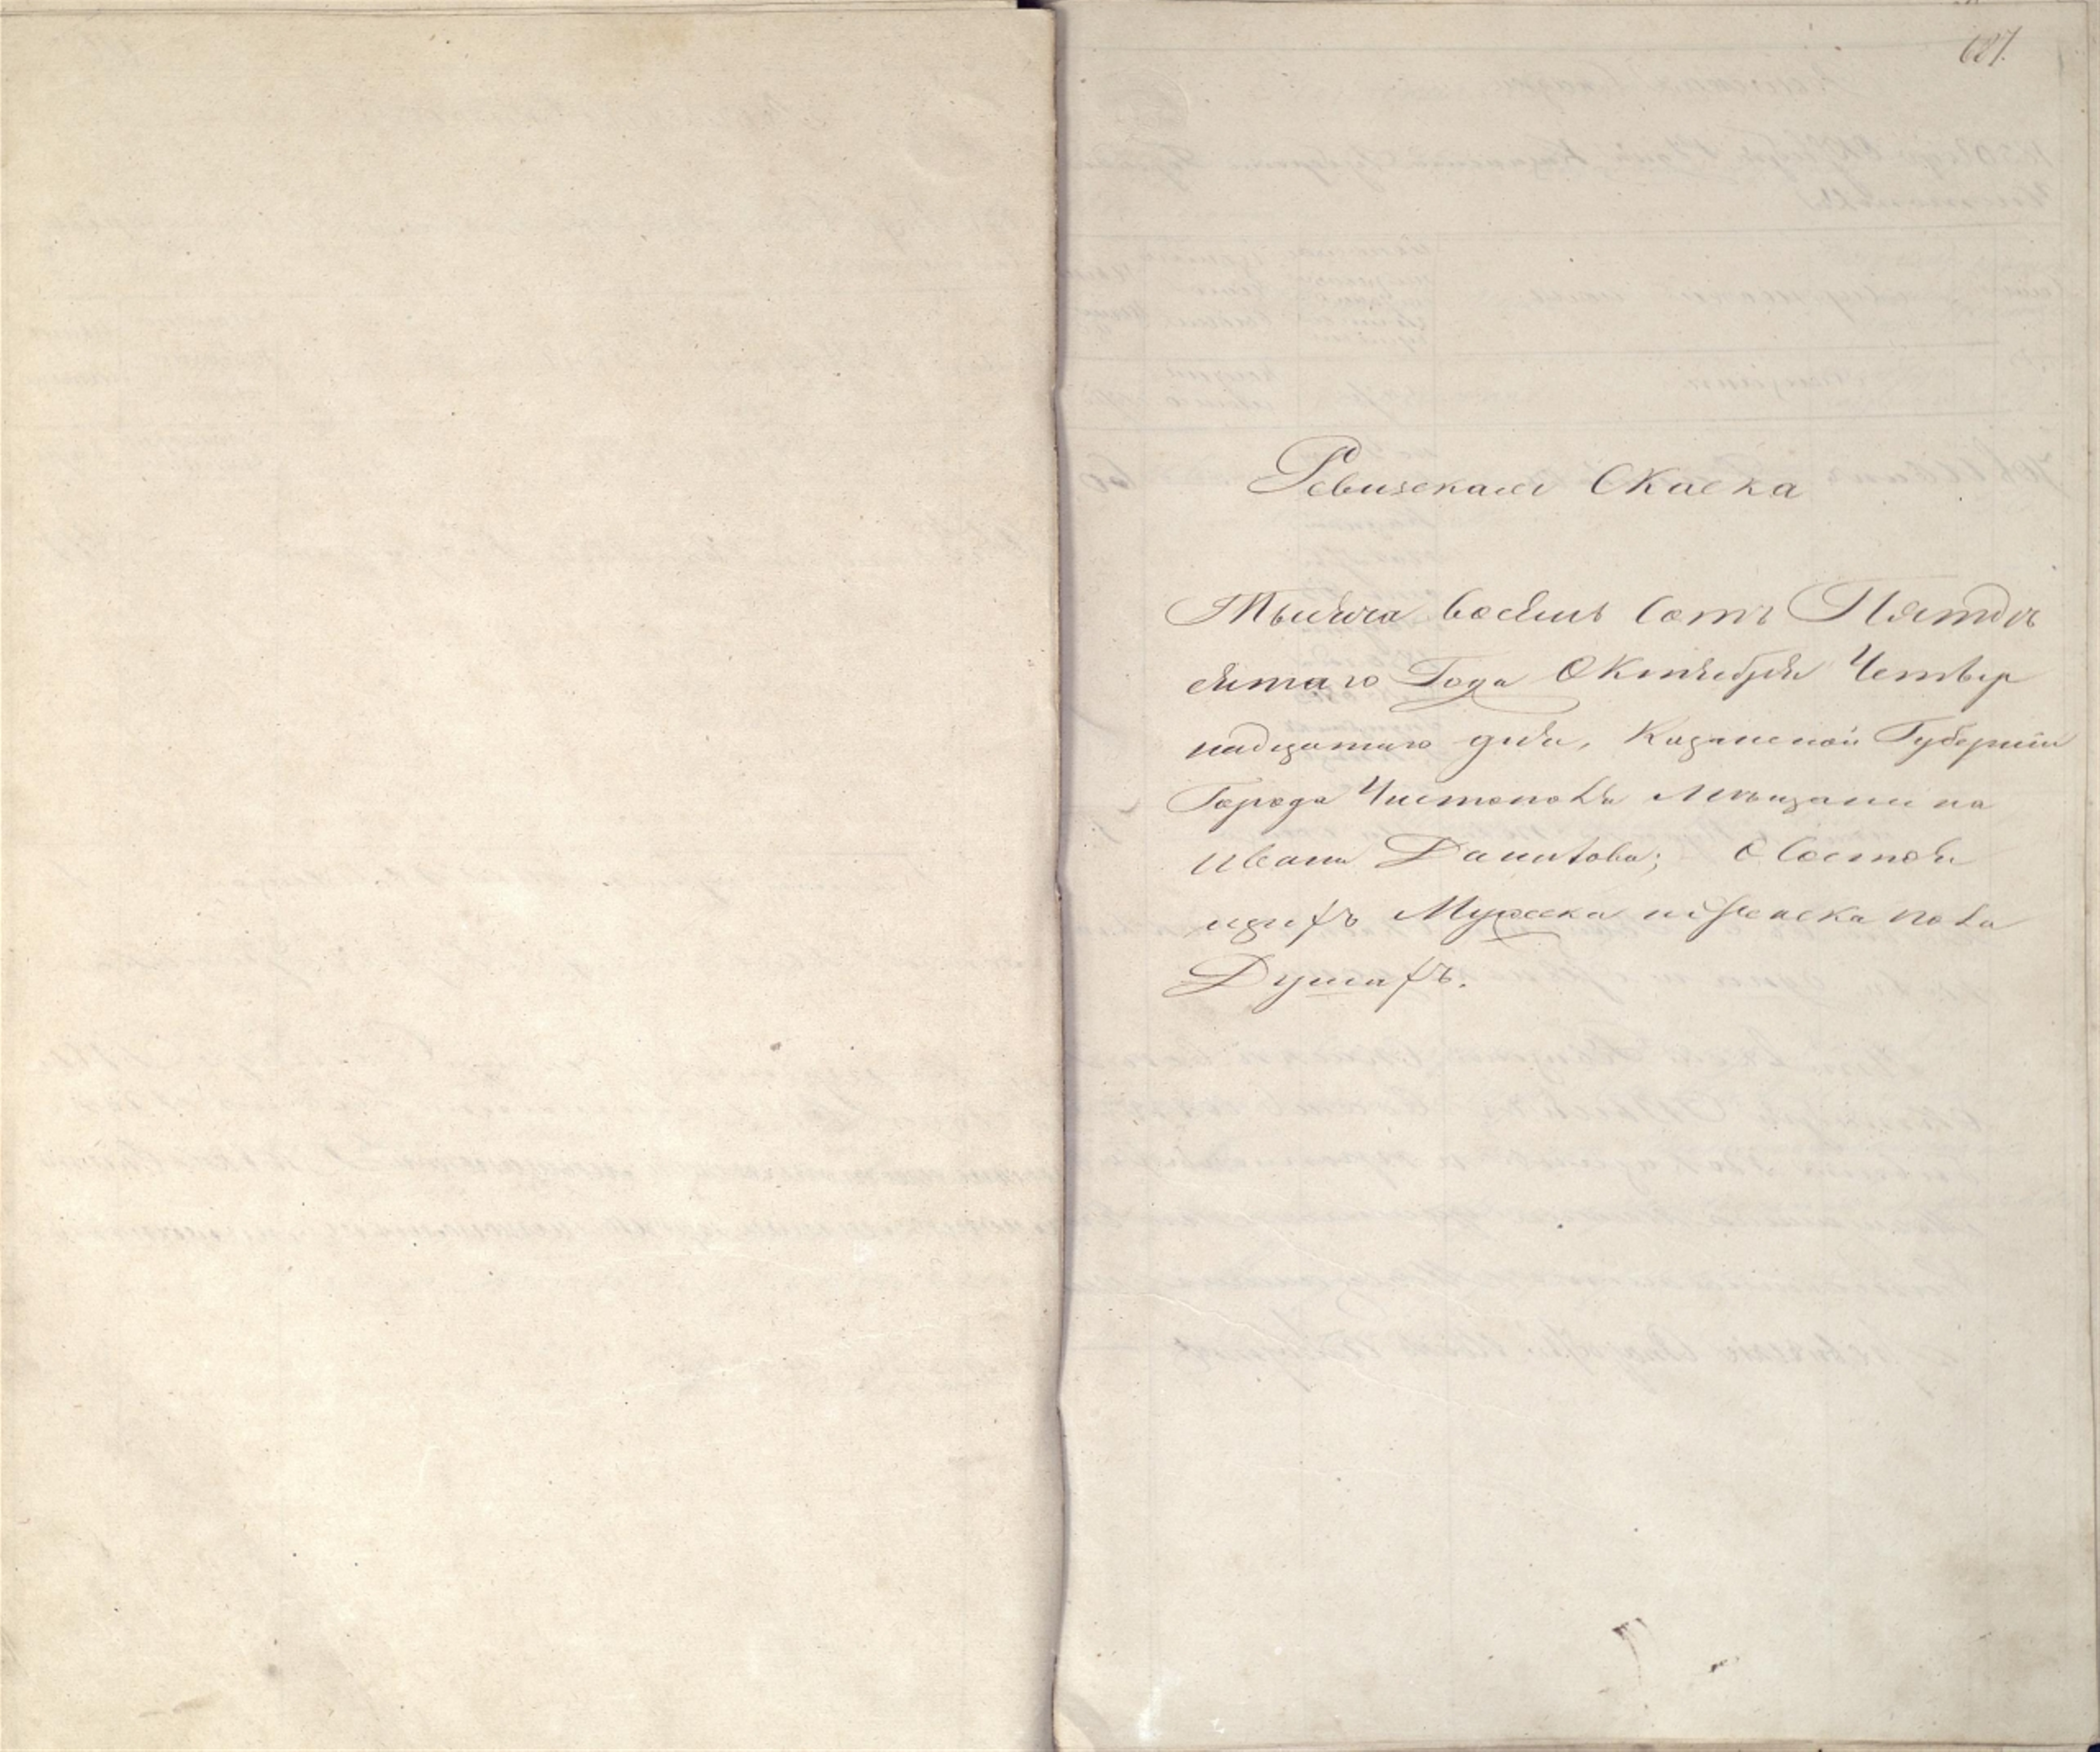 687.
Ревизская Скаска
Тысяча восемь сотъ Пятдѣ
сятаго Года Октября Четвер
надцатаго дня, Казанской Губерніи
Города Чистополя Мѣщанина
Ивана Данилова; О Состоя
щихъ Мужеска и женска пола
Душахъ.